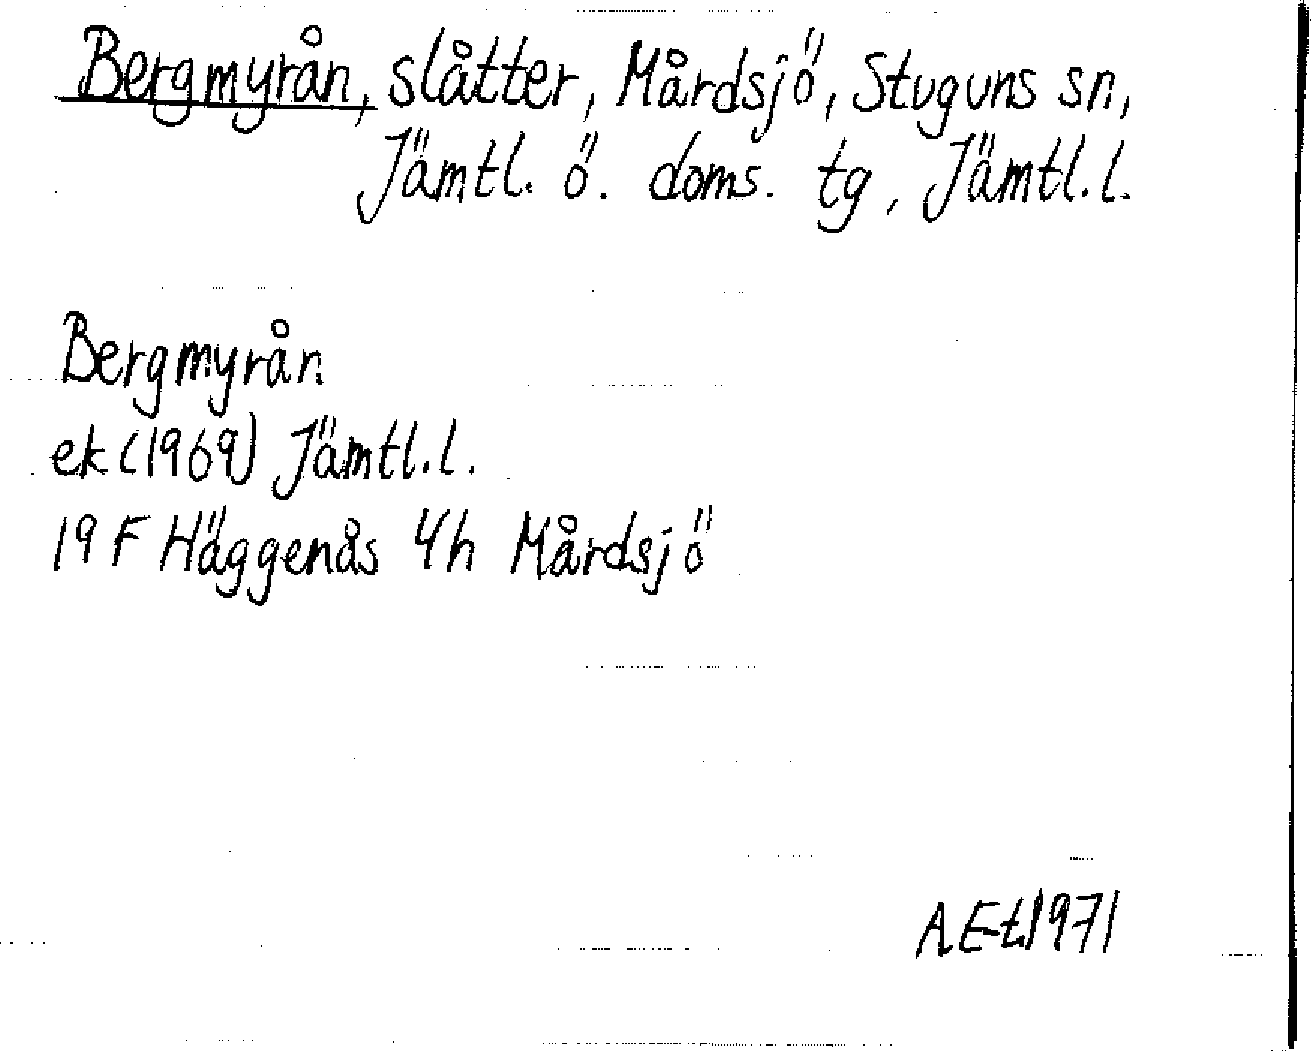 Bergmyrån, slåtter, Mårdsjö, Stuguns sn,
Jämtl. ö. doms. tg, Jämtl.l.
Bergmyrån
ek (1969) Jämtl.l.
19 F Häggenås 4h Mårdsjö
A.E-t.1971